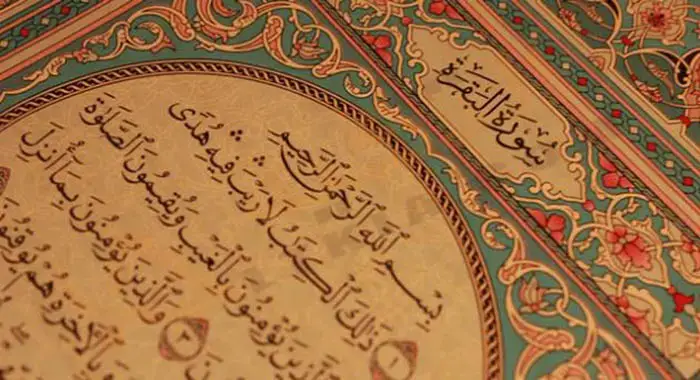 سُورَةُ البَقَرَةِ
بِسْمِ ٱللَّهِ ٱلرَّحْمَٰنِ ٱلرَّحِيمِ
١ ذَٰلِكَ ٱلْكِتَٰبُ لَا رَيْبَ ۛ فِيهِ ۛ هُدًى
ٱلَّذِينَ يُؤْمِنُونَ بِٱلْغَيْبِ وَيُقِيمُونَ ٱلصَّلَوٰةَ
٣ وَٱلَّذِينَ يُؤْمِنُونَ بِمَآ أُنزِلَ
وَبِٱلْآخِرَةِ هُمْ يُوقِنُونَ